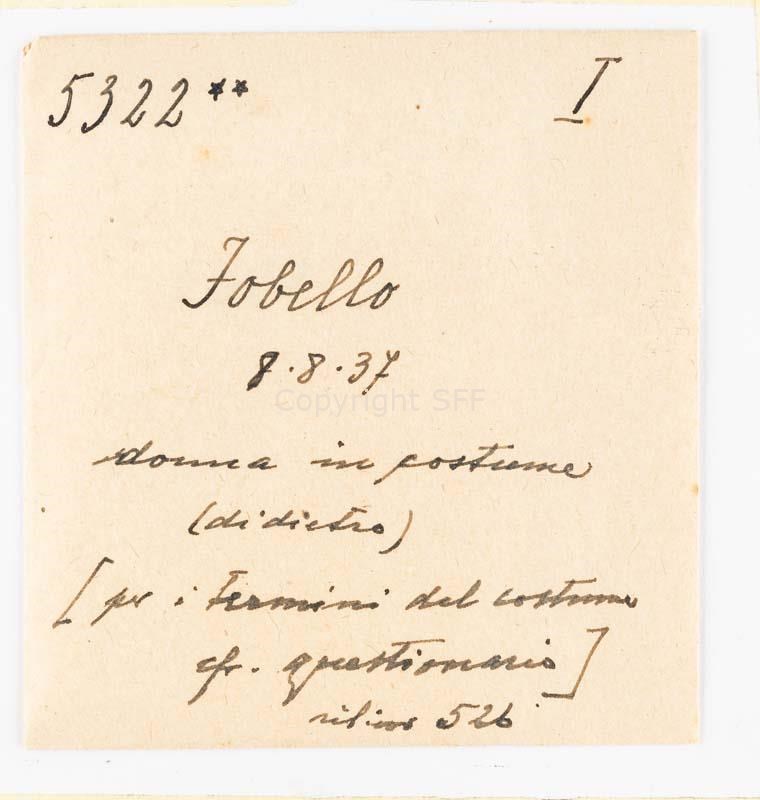 5322** I
Fobello
8.8.37
Copyright SFF
donna in costume
(di dietro)
[per i termini del costume
cfr. questionario]
526